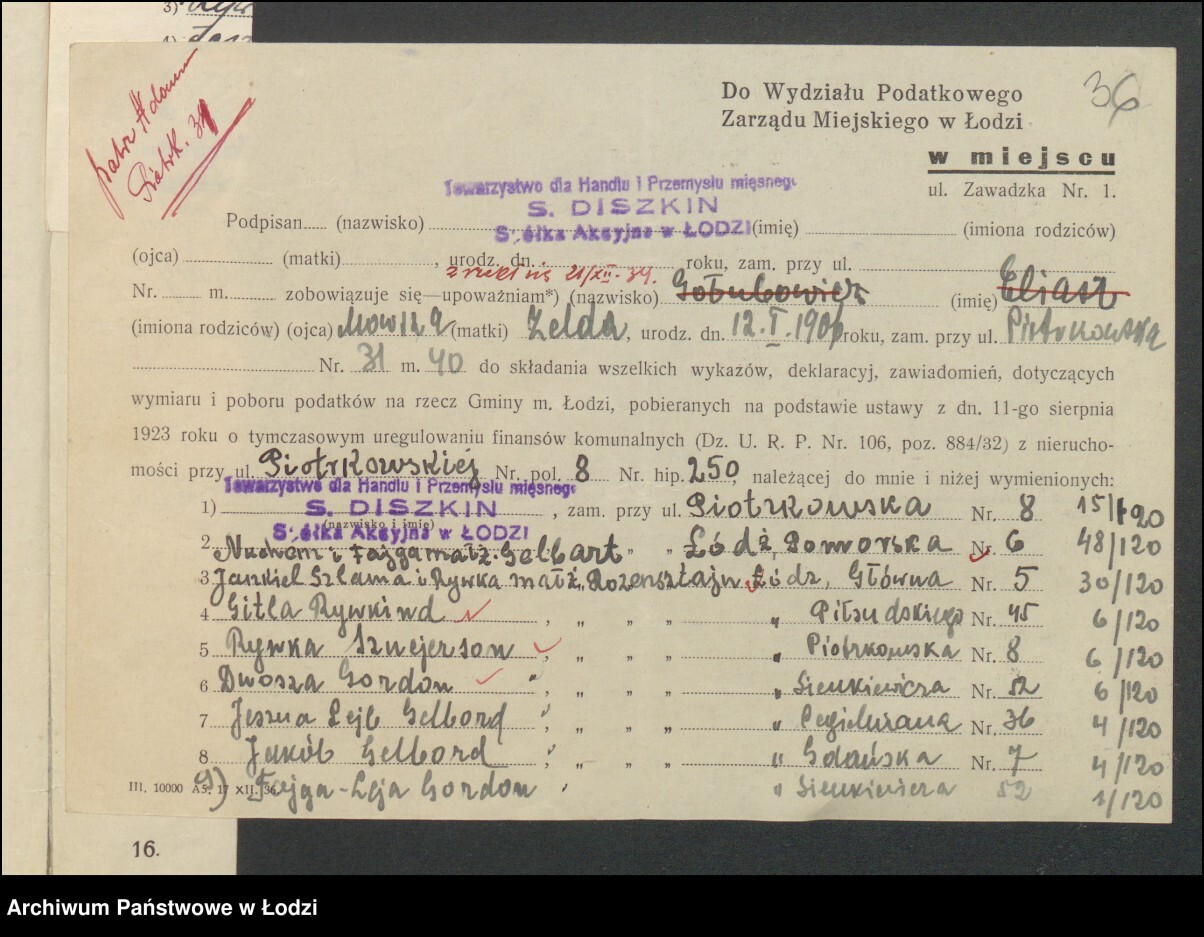 3)
4)
patrz Adonum
Piotrk. 31
36
Do Wydziału Podatkowego
Zarządu Miejskiego w Łodzi
w miejscu
ul. Zawadzka Nr. 1.
Towarzystwo dla Handlu i Przemysłu mięsnego
S. DISZKIN
Spółka Akcyjna w ŁODZI
Podpisan (nazwisko) (imię) (imiona rodziców)
(ojca) (matki) , urodz. dn. roku, zam. przy ul.
21/XII-39.
Nr. m. zobowiązuje się—upoważniam*) (nazwisko) Gołubowicz (imię) Eliasz
(imiona rodziców) (ojca) Mowsza (matki) Zelda, urodz. dn. 12.I.1906 roku, zam. przy ul. Piotrkowska
Nr. 31 m. 40 do składania wszelkich wykazów, deklaracyj, zawiadomień, dotyczących
wymiaru i poboru podatków na rzecz Gminy m. Łodzi, pobieranych na podstawie ustawy z dn. 11-go sierpnia
1923 roku o tymczasowym uregulowaniu finansów komunalnych (Dz. U. R. P. Nr. 106, poz. 884/32) z nierucho-
mości przy ul. Piotrkowskiej Nr. pol. 8 Nr. hip. 250, należącej do mnie i niżej wymienionych:
Towarzystwo dla Handlu i Przemysłu mięsnego
S. DISZKIN
Spółka Akcyjna w ŁODZI
1) , zam. przy ul. Piotrkowska Nr. 8 15/120
(nazwisko i imię)
2. Nuchem i Fajga małż. Gelbart " Łódź, Pomorska Nr. 6 48/120
3 Jankiel Szlama i Rywka małż. Rozensztajn Łódz, Główna Nr. 5 30/120
4 Gitla Rywkind , " " " " Piłsudskiego Nr. 45 6/120
5 Rywka Sznejerson , " " " " Piotrkowska Nr. 8 6/120
6 Dwosza Gordon " , " " " " Sienkiewicza Nr. 52 6/120
7 Jeszua Lejb Gelbord , " " " " Cegielniana Nr. 36 4/120
8 Jakób Gelbord , " " " " Gdańska Nr. 7 4/120
9) Fajga-Leja Gordon " " Sienkiewicza 52 1/120
III. 10000 A5. 17 XII. 36.
16.
Archiwum Państwowe w Łodzi